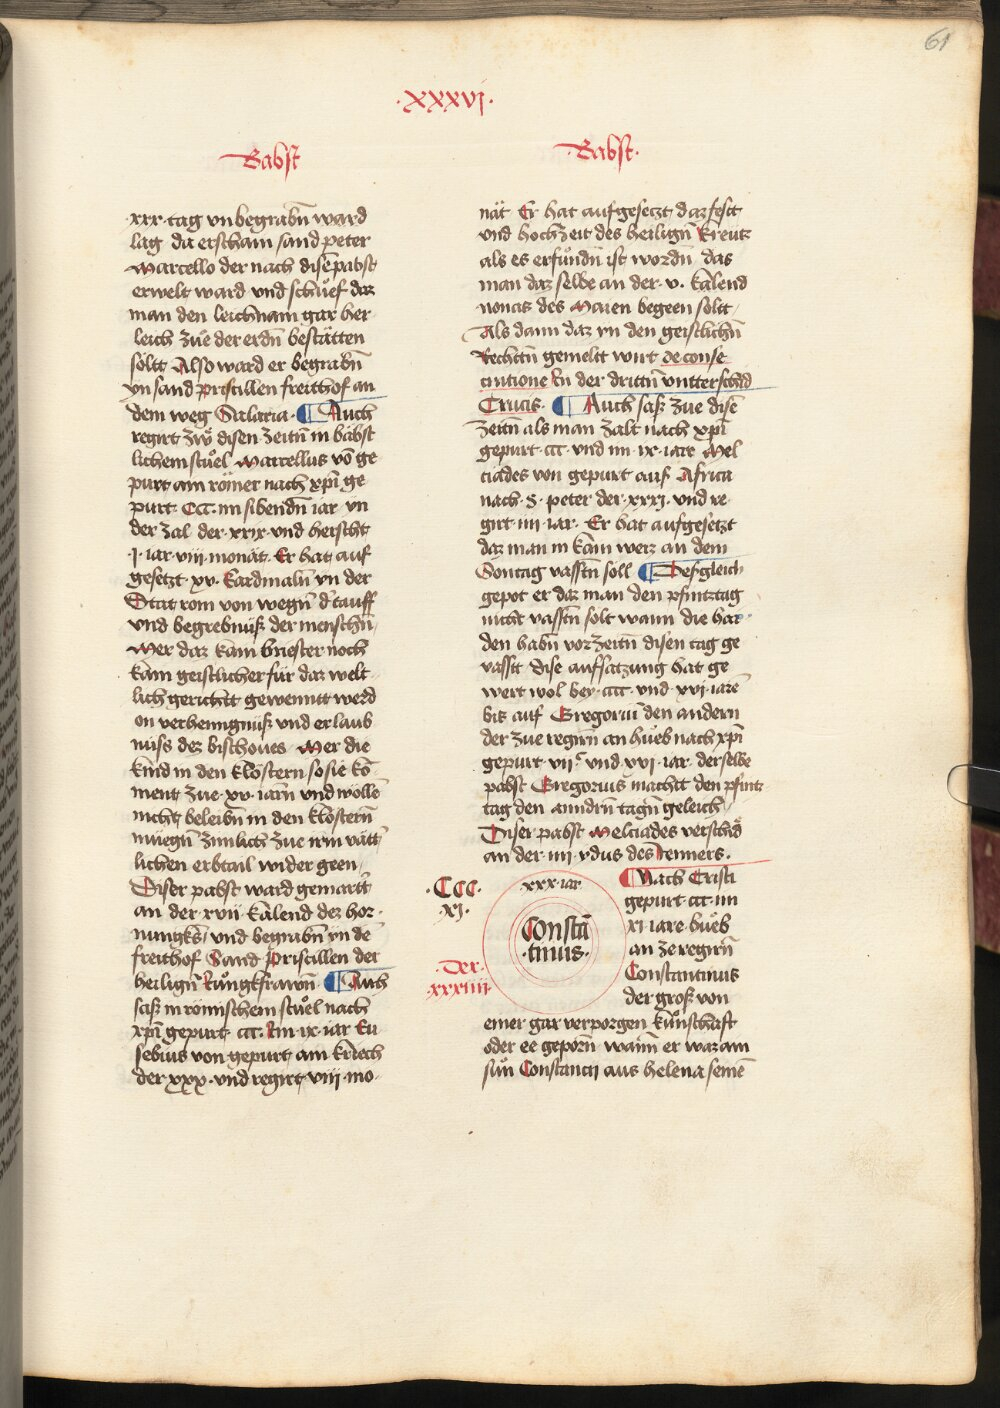 61
·xxxvj·
Babst
xxx·tag vnbegrabn̄ ward
lag da erscham sand peter
Marcello der nach disē pabst
erwelt ward vnd schuͦef daz
man den leichnam gar her
leich zuͦe der erdn̄ bestätten
soltt Also ward er begrabn̄
yn sand pristillen freithof an
dem weg Salaria· ¶ Auch
regirt zwͦ disen zeitn̄ in bäbst
lichem stuͦel Marcellus vō ge
purt am römer nach xp̄i ge
purt· CCC· im sibendn̄ iar yn
der zal der·xxix·vnd herscht
·j·iar·viii·monät· Er hat auf
gesetzt·xv·Kardinaln̄ yn der
Stat rom von wegn̄ d' tauff
vnd begrebnüß der menschn̄
Mer daz kam briester noch
kām geistlicher für daz welt
lich gerichtt gewenntt werd
on verhenngnüß vnd erlaub
nüss dez bischoues Mer die
kind in den klöstern so sie kō
ment zue·xv·iarn̄ vnd wolle
nicht beleibn̄ in den klostern̄
müegn̄ zimlich zue irm vätt'
lichen erbtail wider geen
Diser pabst ward gemartt'
an der xvii kalend dez hor
nungks vnd begrabn̄ yn de
freithof Sand Priscillen der
heilign̄ Kungkfrawn̄· ¶ Auch
saß in römischem stuͦel nach
xp̄i gepurt· ccc· Im·ix·iar Eu
sebius von gepurt am kriech
der xxx·vnd regirt viii mo
·Babst·
nät Er hat aufgesetzt daz festt
vnd hochzeit des heilign̄ Kreutz
als es erfundn̄ ist wordn̄ das
man daz selbe an der·v·kalend
nonas des Maien begeen soltt
Als dann daz yn den geistlichn̄
Rechttn̄ gemeltt wirt de conse
cratione In der drittn̄ vntterschid
Crucis· ¶ Auch saß zue disē
zeitn̄ als man zalt nach xp̄i
gepurt·ccc·vnd im·ix·iare Mel
ciades von gepurt auß Africa
nach·S·peter der·xxxj·vnd re
girt·iiii·iar· Er hat aufgesetzt
daz man in kām weiz an dem
Sontag vasstn̄ soll ¶ Desgleich
gepot er daz man den pfintztag
nicht vasstn̄ solt wann die hai
den habn̄ vor zeitn̄ disen tag ge
vasstt dise auffsatzung hat ge
wert wol bey·ccc·vnd·xvj·iare
bis auf Gregoriū den andern
der zue regirn̄ an hueb nach xp̄i
gepurt vii·c vnd xvj·iar·derselbe
pabst Gregorius machtt den pfintz
tag den anndrn̄ tagn̄ geleich
Diser pabst Melciades verschid
an der·iiii·ydus des Jenners·
·CCC·
·xj·
·Der·
·xxxiiii·
·xxx·iar
Constā
·tinus·
¶ Nach Cristi
gepurt·ccc·im
xi·iare·hueb
an ze regirn̄
Constantinus
der groß von
einer gar verporgen kunschaft
oder ee geporn̄ wann̄ er waz am
sun̄ Constancii aus helena seinē